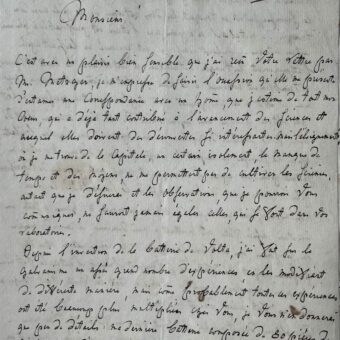 Monsieur
C'est avec un plaisir bien sensible que j'ai reçu votre lettre par
Mr. Metzger; je m'empresse de saisir l'occasion qu'elle me présente
d'entamer une Correspondance avec un homme que j'estime de tout mon
Coeur, qui a déja tant contribué à l'avancement des Sciences et
auquel elles doivent des découvertes si intéressantes
où je me trouve de la Capitale, un certain isolement le manque de
temps et des moyens, ne me permettent pas de cultiver les Sciences
autant que je désirerai et les Observations, que je pourrai vous
communiquer, ne sauront jamais égaler celles qui se font dans vos
laboratoires.
Depuis l'invention de la Batterie de Volta, j'ai fait sur le
galvanisme un assés grand nombre d'expériences, en les modifiant
de diverses manieres, mais comme probablement toutes ces expériences
ont été beaucoup plus multipliées chez vous, je vous
que peu de détails: ma derniere batterie composée de 80 pièces de